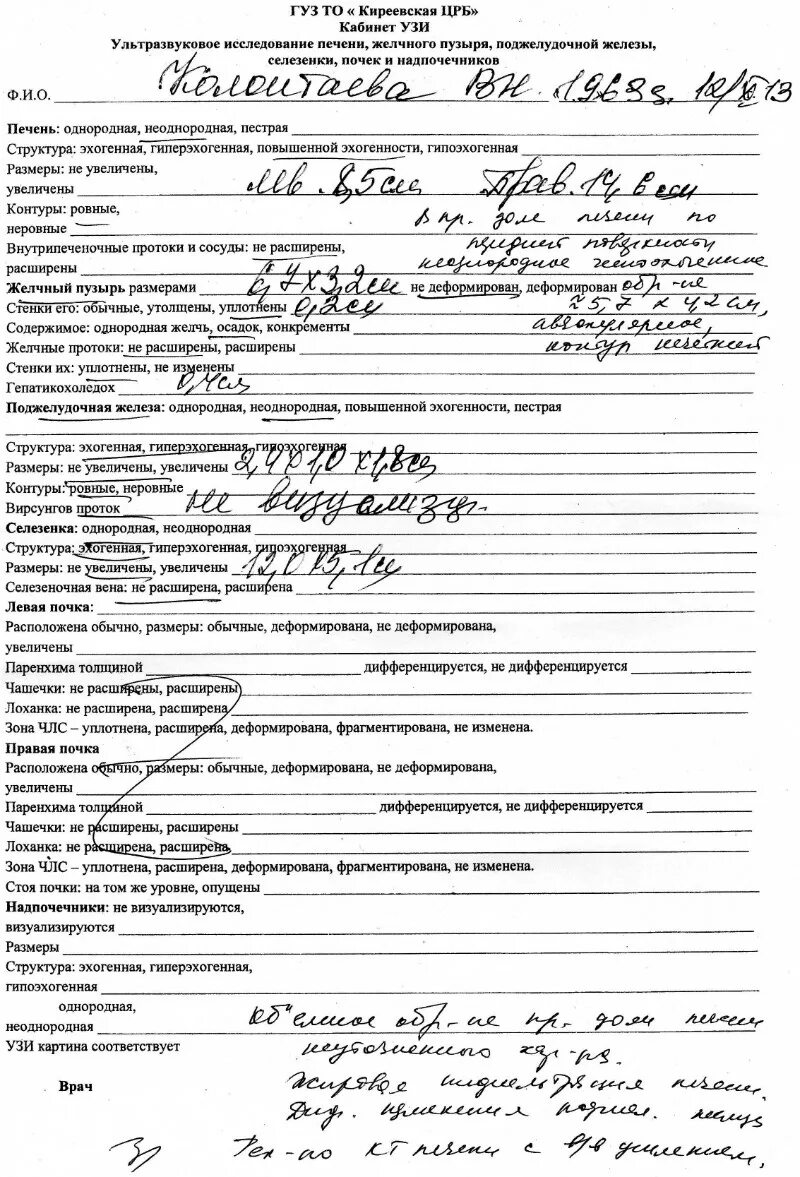 ГУЗ ТО « Киреевская ЦРБ»
Кабинет УЗИ
Ультразвуковое исследование печени, желчного пузыря, поджелудочной железы,
селезенки, почек и надпочечников
Ф.И.О. ВН. 1963г. 12/XI 13
Печень: однородная, неоднородная, пестрая
Структура: эхогенная, гиперэхогенная, повышенной эхогенности, гипоэхогенная
Размеры: не увеличены,
увеличены 8,5см Прав. 14,6 см
Контуры: ровные,
неровные В пр. доле печени по
Внутрипеченочные протоки и сосуды: не расширены, передней поверхности
расширены неоднородное
Желчный пузырь размерами 6,7х3,2см не деформирован, деформирован обр-ие
Стенки его: обычные, утолщены, уплотнены 0,2см ≈5,7 х 4,2 см,
Содержимое: однородная желчь, осадок, конкременты аваскулярное,
Желчные протоки: не расширены, расширены контур нечеткий
Стенки их: уплотнены, не изменены
Гепатикохоледох 0,4см
Поджелудочная железа: однородная, неоднородная, повышенной эхогенности, пестрая
Структура: эхогенная, гиперэхогенная, гипоэхогенная
Размеры: не увеличены, увеличены 2,4х1,0х1,8см
Контуры: ровные, неровные
Вирсунгов проток не визуализир.
Селезенка: однородная, неоднородная
Структура: эхогенная, гиперэхогенная, гипоэхогенная
Размеры: не увеличены, увеличены 12,0х5,1см
Селезеночная вена: не расширена, расширена
Левая почка:
Расположена обычно, размеры: обычные, деформирована, не деформирована,
увеличены
Паренхима толщиной дифференцируется, не дифференцируется
Чашечки: не расширены, расширены
Лоханка: не расширена, расширена
Зона ЧЛС – уплотнена, расширена, деформирована, фрагментирована, не изменена.
Правая почка
Расположена обычно, размеры: обычные, деформирована, не деформирована,
увеличены
Паренхима толщиной дифференцируется, не дифференцируется
Чашечки: не расширены, расширены
Лоханка: не расширена, расширена
Зона ЧЛС – уплотнена, расширена, деформирована, фрагментирована, не изменена.
Стоя почки: на том же уровне, опущены
Надпочечники: не визуализируются,
визуализируются
Размеры
Структура: эхогенная, гиперэхогенная,
гипоэхогенная
однородная,
неоднородная Об"емное обр-ие пр. доли печени
УЗИ картина соответствует неуточненного хар-ра.
Врач Жировая инфильтрация печени.
Диф. изменения поджел. железы
Рек-но КТ печени с в/в усилением.